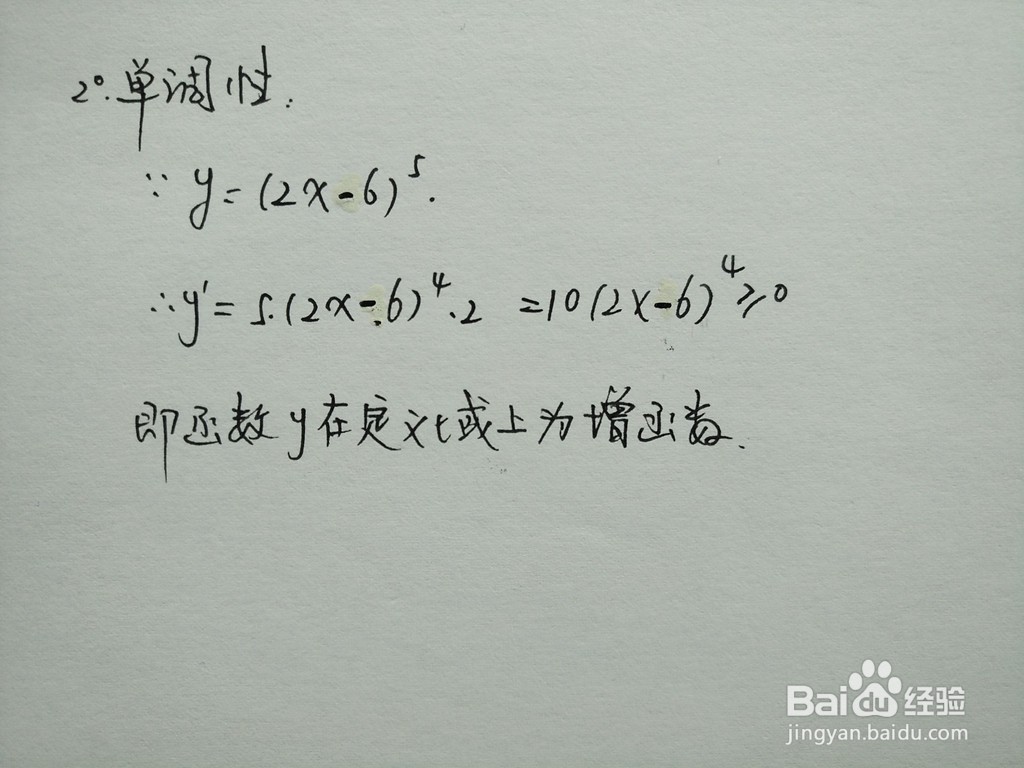 2°.单调性:
∵ y=(2x-6)⁵.
∴y'=5.(2x-6)⁴.2 =10(2x-6)⁴≥0
即函数y在定义域上为增函数.
Bai du 经验
jingyan.baidu.com